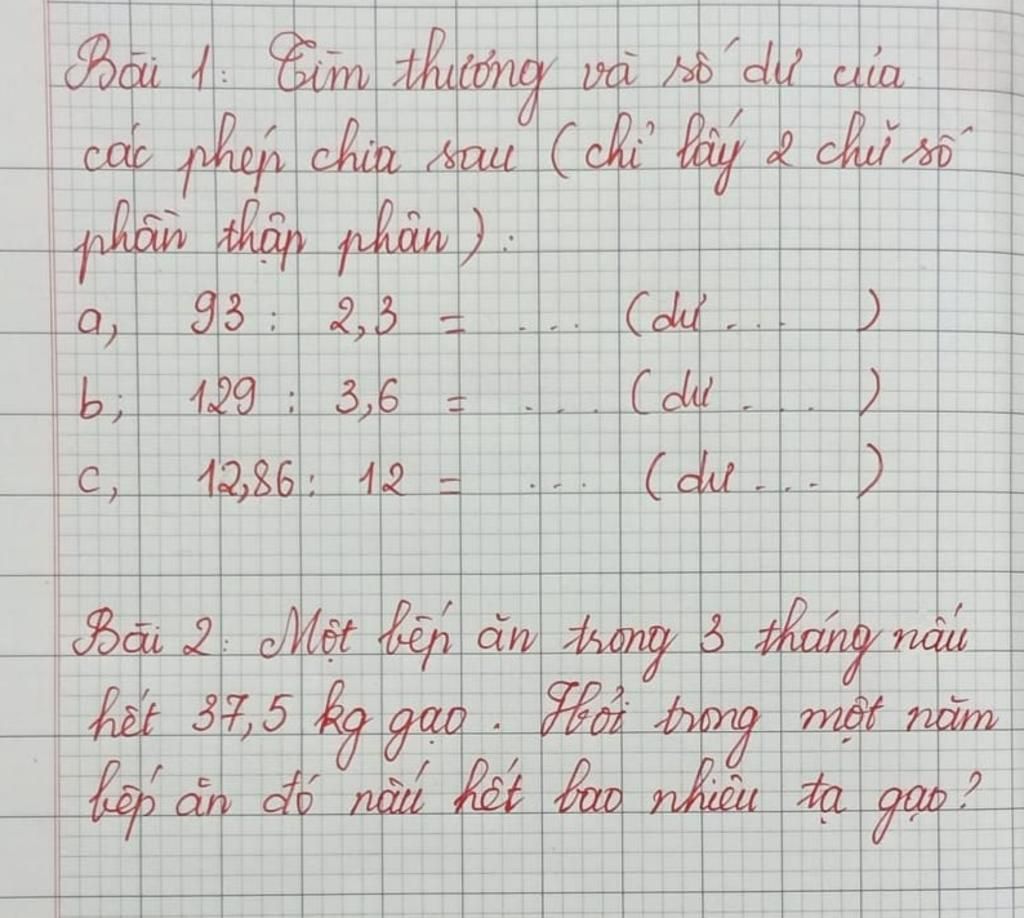 Bài 1: Tìm thương và số dư của
các phép chia sau (chỉ lấy 2 chữ số
phần thập phân):
a, 93 : 2,3 = ... (dư ... )
b; 129 : 3,6 = ... (dư ... )
c, 12,86 : 12 = ... (dư ... )
Bài 2: Một bếp ăn trong 3 tháng nấu
hết 37,5 kg gạo. Hỏi trong một năm
bếp ăn đó nấu hết bao nhiêu tạ gạo?